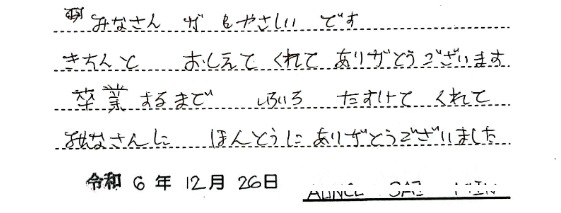 みなさん が もやさしい です
きちんと おしえて くれて ありがとうございます
卒業するまで いろいろ たすけて くれて
みなさんに ほんとうに ありがとうございました
令和 6 年 12 月 26日